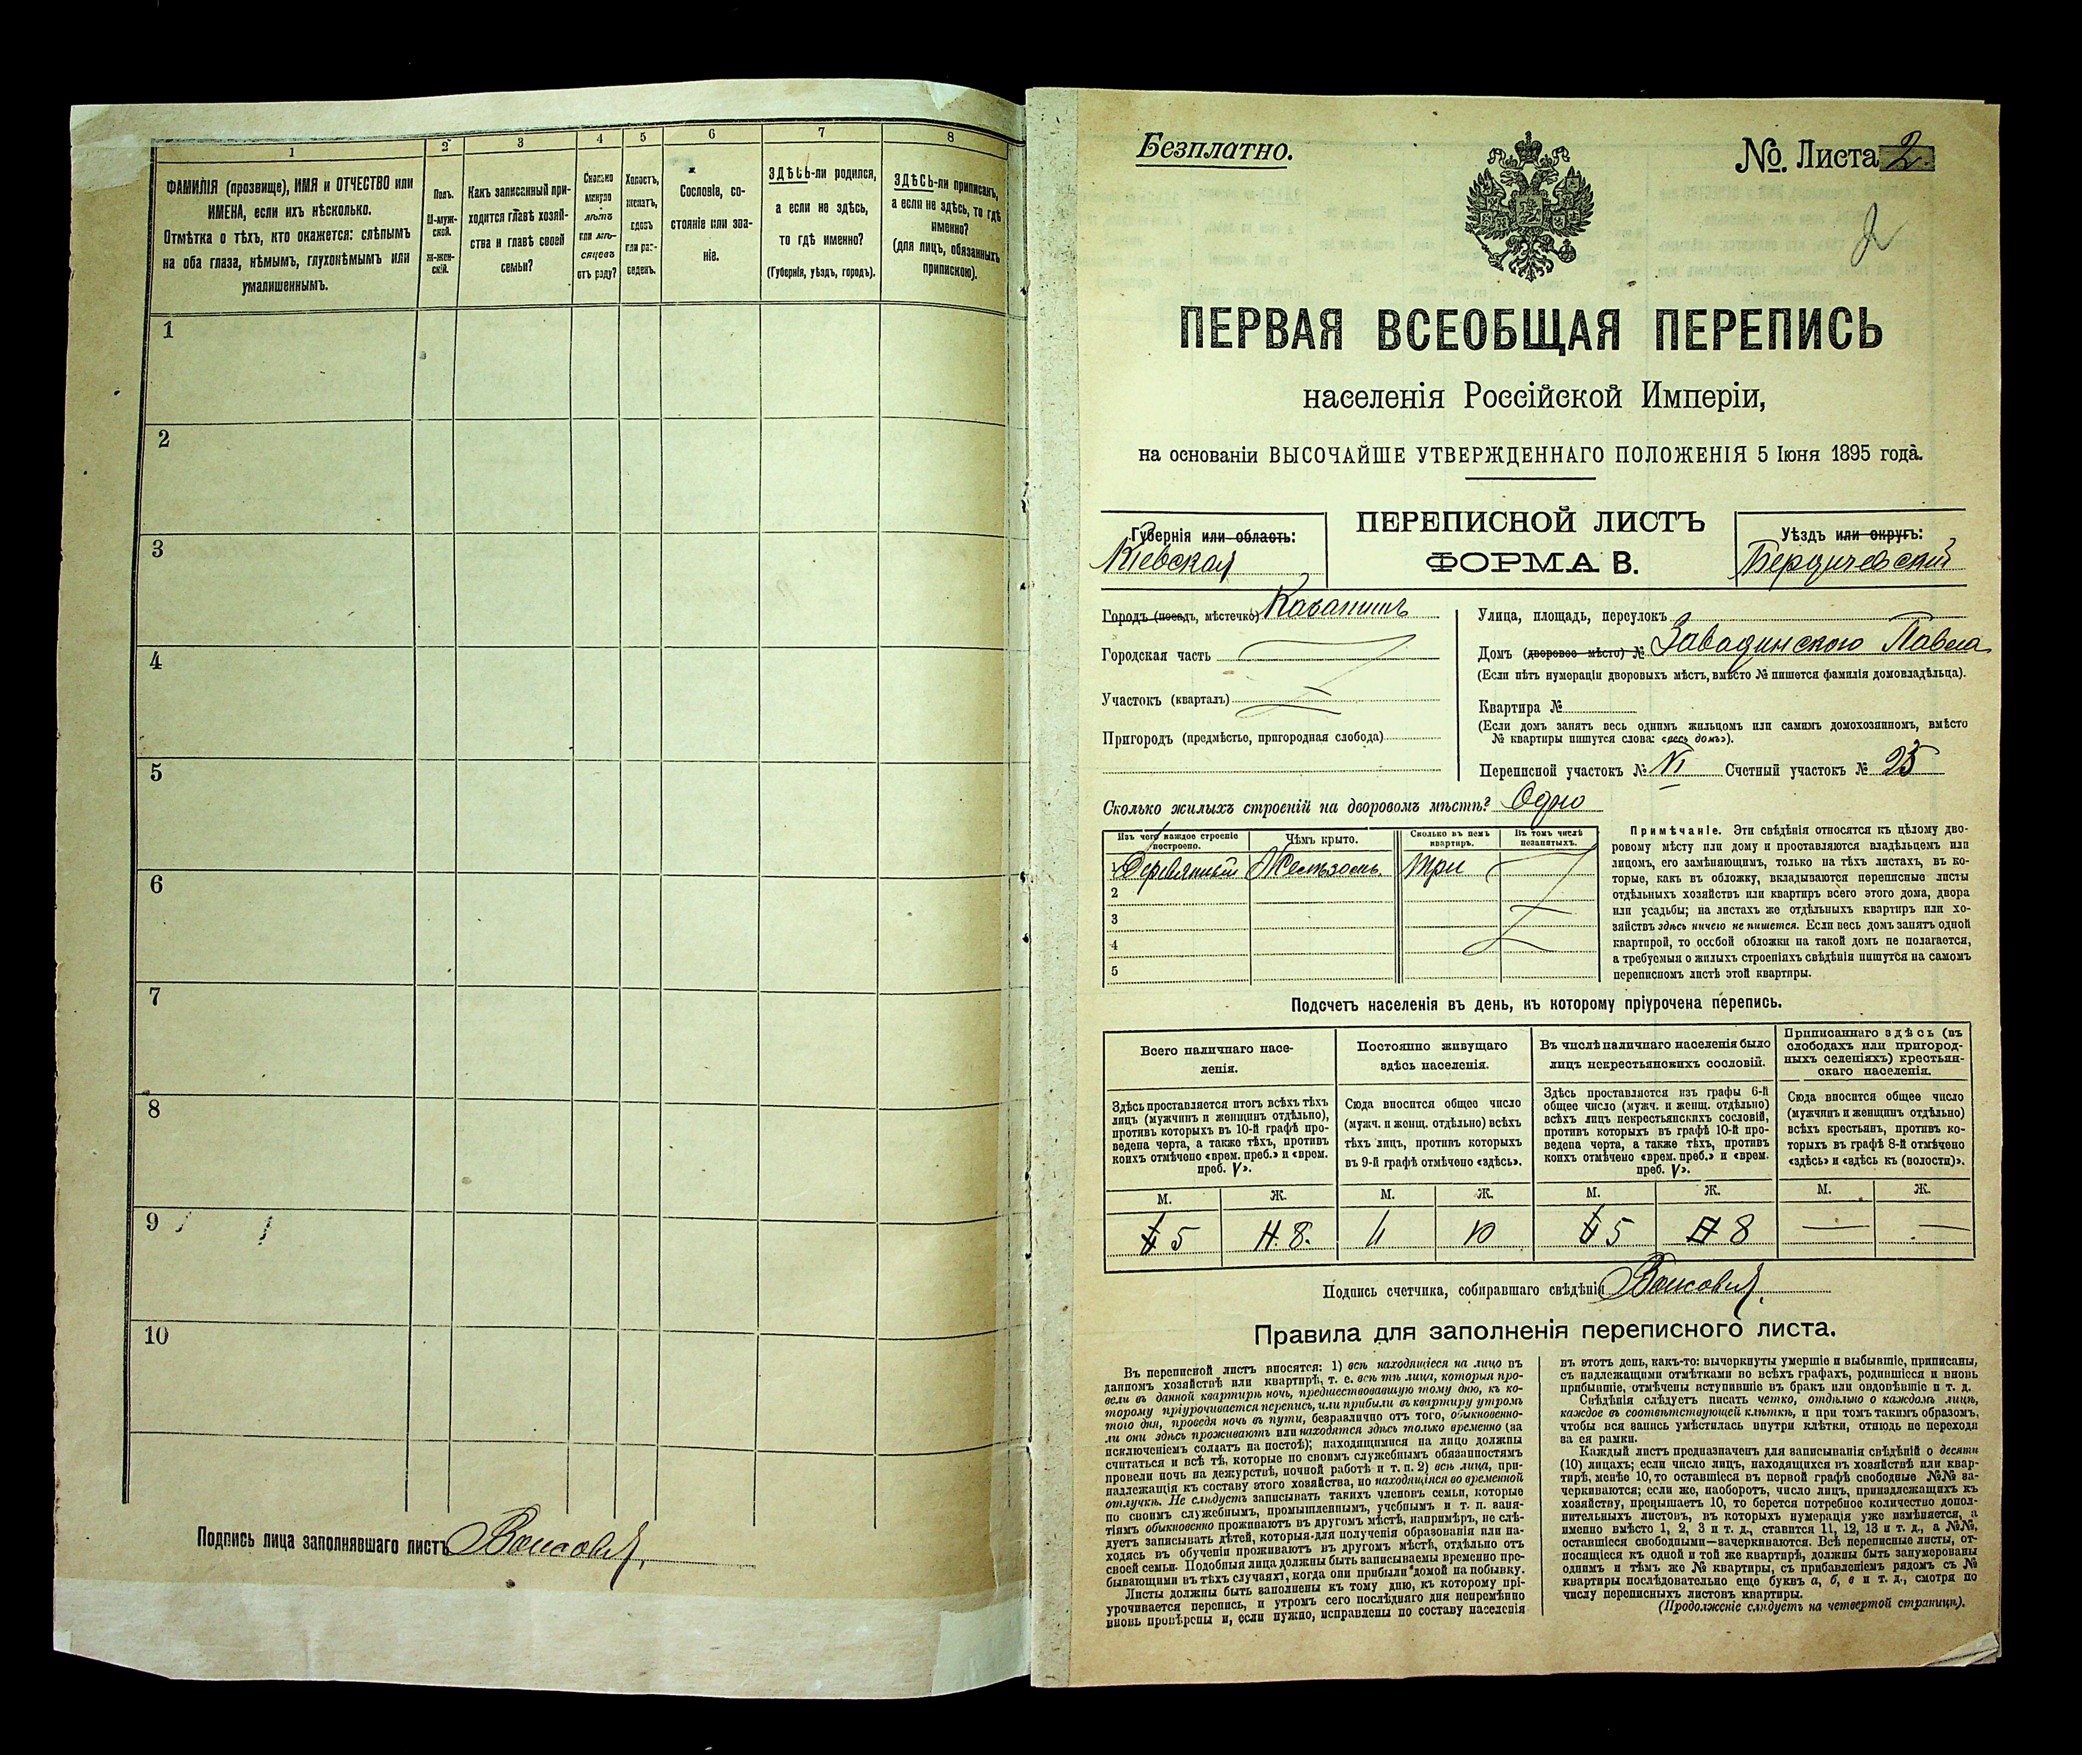 1 2 3 4 5 6 7 8
ФАМИЛІЯ (прозвище), ИМЯ и ОТЧЕСТВО или
ИМЕНА, если ихъ нѣсколько.
Отмѣтка о тѣхъ, кто окажется: слѣпымъ
на оба глаза, нѣмымъ, глухонѣмымъ или
умалишеннымъ.
Полъ.
М-муж-
ской.
Ж-жен-
скій.
Какъ записанный при-
ходится главѣ хозяй-
ства и главѣ своей
семьи?
Сколько
минуло
лѣтъ
или мѣ-
сяцевъ
отъ роду?
Холостъ,
женатъ,
вдовъ
или раз-
веденъ.
Сословіе, со-
стояніе или зва-
ніе.
ЗДѢСЬ-ли родился,
а если не здѣсь,
то гдѣ именно?
(Губернія, уѣздъ, городъ).
ЗДѢСЬ-ли приписанъ,
а если не здѣсь, то гдѣ
именно?
(для лицъ, обязанныхъ
припискою).
1
2
3
4
5
6
7
8
9
10
Подпись лица заполнявшаго листъ
Безплатно.
№ Листа 2
2
ПЕРВАЯ ВСЕОБЩАЯ ПЕРЕПИСЬ
населенія Россійской Имперіи,
на основаніи ВЫСОЧАЙШЕ УТВЕРЖДЕННАГО ПОЛОЖЕНІЯ 5 Іюня 1895 года.
Губернія или область:
Кіевская
ПЕРЕПИСНОЙ ЛИСТЪ
ФОРМА В.
Уѣздъ или округъ:
Бердичевскій
Городъ (посадъ, мѣстечко)
Городская часть
Участокъ (кварталъ)
Пригородъ (предмѣстье, пригородная слобода)
Улица, площадь, переулокъ
Домъ (дворовое мѣсто) № Завадинского Павла
(Если нѣтъ нумераціи дворовыхъ мѣстъ, вмѣсто № пишется фамилія домовладѣльца).
Квартира №
(Если домъ занятъ весь однимъ жильцомъ или самимъ домохозяиномъ, вмѣсто
№ квартиры пишутся слова: «весь домъ»).
Переписной участокъ № VI Счетный участокъ № 25
Сколько жилыхъ строеній на дворовомъ мѣстѣ? Одно
Изъ чего каждое строеніе
построено.
Чѣмъ крыто.
Сколько въ немъ
квартиръ.
Въ томъ числѣ
незанятыхъ.
1 Деревянный Желѣзомъ. три
2
3
4
5
Примѣчаніе. Эти свѣдѣнія относятся къ цѣлому дво-
ровому мѣсту или дому и проставляются владѣльцемъ или
лицомъ, его замѣняющимъ, только на тѣхъ листахъ, въ ко-
торые, какъ въ обложку, вкладываются переписные листы
отдѣльныхъ хозяйствъ или квартиръ всего этого дома, двора
или усадьбы; на листахъ же отдѣльныхъ квартиръ или хо-
зяйствъ здѣсь ничего не пишется. Если весь домъ занятъ одной
квартирой, то особой обложки на такой домъ не полагается,
а требуемыя о жилыхъ строеніяхъ свѣдѣнія пишутся на самомъ
переписномъ листѣ этой квартиры.
Подсчетъ населенія въ день, къ которому пріурочена перепись.
Всего наличнаго насе-
ленія.
Здѣсь проставляется итогъ всѣхъ тѣхъ
лицъ (мужчинъ и женщинъ отдѣльно),
противъ которыхъ въ 10-й графѣ про-
ведена черта, а также тѣхъ, противъ
коихъ отмѣчено «врем. преб.» и «врем.
преб. V».
Постоянно живущаго
здѣсь населенія.
Сюда вносится общее число
(мужч. и женщ. отдѣльно) всѣхъ
тѣхъ лицъ, противъ которыхъ
въ 9-й графѣ отмѣчено «здѣсь».
Въ числѣ наличнаго населенія было
лицъ некрестьянскихъ сословій.
Здѣсь проставляется изъ графы 6-й
общее число (мужч. и женщ. отдѣльно)
всѣхъ лицъ некрестьянскихъ сословій,
противъ которыхъ въ графѣ 10-й про-
ведена черта, а также тѣхъ, противъ
коихъ отмѣчено «врем. преб.» и «врем.
преб. V».
Приписаннаго здѣсь (въ
слободахъ или пригород-
ныхъ селеніяхъ) крестьян-
скаго населенія.
Сюда вносится общее число
(мужчинъ и женщинъ отдѣльно)
всѣхъ крестьянъ, противъ ко-
торыхъ въ графѣ 8-й отмѣчено
«здѣсь» и «здѣсь къ (волости)».
М. Ж. М. Ж. М. Ж. М. Ж.
5 8. 10 5 8 — —
Подпись счетчика, собиравшаго свѣдѣнія
Правила для заполненія переписного листа.
Въ переписной листъ вносятся: 1) всѣ находящіеся на лицо въ
данномъ хозяйствѣ или квартирѣ, т. е. всѣ тѣ лица, которыя про-
вели въ данной квартирѣ ночь, предшествовавшую тому дню, къ ко-
торому пріурочивается перепись, или прибыли въ квартиру утромъ
того дня, проведя ночь въ пути, безразлично отъ того, обыкновенно-
ли они здѣсь проживаютъ или находятся здѣсь только временно (за
исключеніемъ солдатъ на постоѣ); находящимися на лицо должны
считаться и всѣ тѣ, которые по своимъ служебнымъ обязанностямъ
провели ночь на дежурствѣ, ночной работѣ и т. п. 2) всѣ лица, при-
надлежащія къ составу этого хозяйства, но находящіяся во временной
отлучкѣ. Не слѣдуетъ записывать такихъ членовъ семьи, которые
по своимъ служебнымъ, промышленнымъ, учебнымъ и т. п. заня-
тіямъ обыкновенно проживаютъ въ другомъ мѣстѣ, напримѣръ, не слѣ-
дуетъ записывать дѣтей, которыя для полученія образованія или на-
ходясь въ обученіи проживаютъ въ другомъ мѣстѣ, отдѣльно отъ
своей семьи. Подобныя лица должны быть записываемы временно пре-
бывающими въ тѣхъ случаяхъ, когда они прибыли домой на побывку.
Листы должны быть заполнены къ тому дню, къ которому прі-
урочивается перепись, и утромъ сего послѣдняго дня непремѣнно
вновь провѣрены и, если нужно, исправлены по составу населенія
въ этотъ день, какъ-то: вычеркнуты умершіе и выбывшіе, приписаны,
съ надлежащими отмѣтками во всѣхъ графахъ, родившіеся и вновь
прибывшіе, отмѣчены вступившіе въ бракъ или овдовѣвшіе и т. д.
Свѣдѣнія слѣдуетъ писать четко, отдѣльно о каждомъ лицѣ,
каждое въ соотвѣтствующей клѣткѣ, и при томъ такимъ образомъ,
чтобы вся запись умѣстилась внутри клѣтки, отнюдь не переходя
за ея рамки.
Каждый листъ предназначенъ для записыванія свѣдѣній о десяти
(10) лицахъ; если число лицъ, находящихся въ хозяйствѣ или квар-
тирѣ, менѣе 10, то оставшіеся въ первой графѣ свободные №№ за-
черкиваются; если же, наоборотъ, число лицъ, принадлежащихъ къ
хозяйству, превышаетъ 10, то берется потребное количество допол-
нительныхъ листовъ, въ которыхъ нумерація уже измѣняется, а
именно вмѣсто 1, 2, 3 и т. д., ставится 11, 12, 13 и т. д., а №№,
оставшіеся свободными—зачеркиваются. Всѣ переписные листы, от-
носящіеся къ одной и той же квартирѣ, должны быть занумерованы
однимъ и тѣмъ же № квартиры, съ прибавленіемъ рядомъ съ №
квартиры послѣдовательно еще буквъ а, б, в и т. д., смотря по
числу переписныхъ листовъ квартиры.
(Продолженіе слѣдуетъ на четвертой страницѣ).